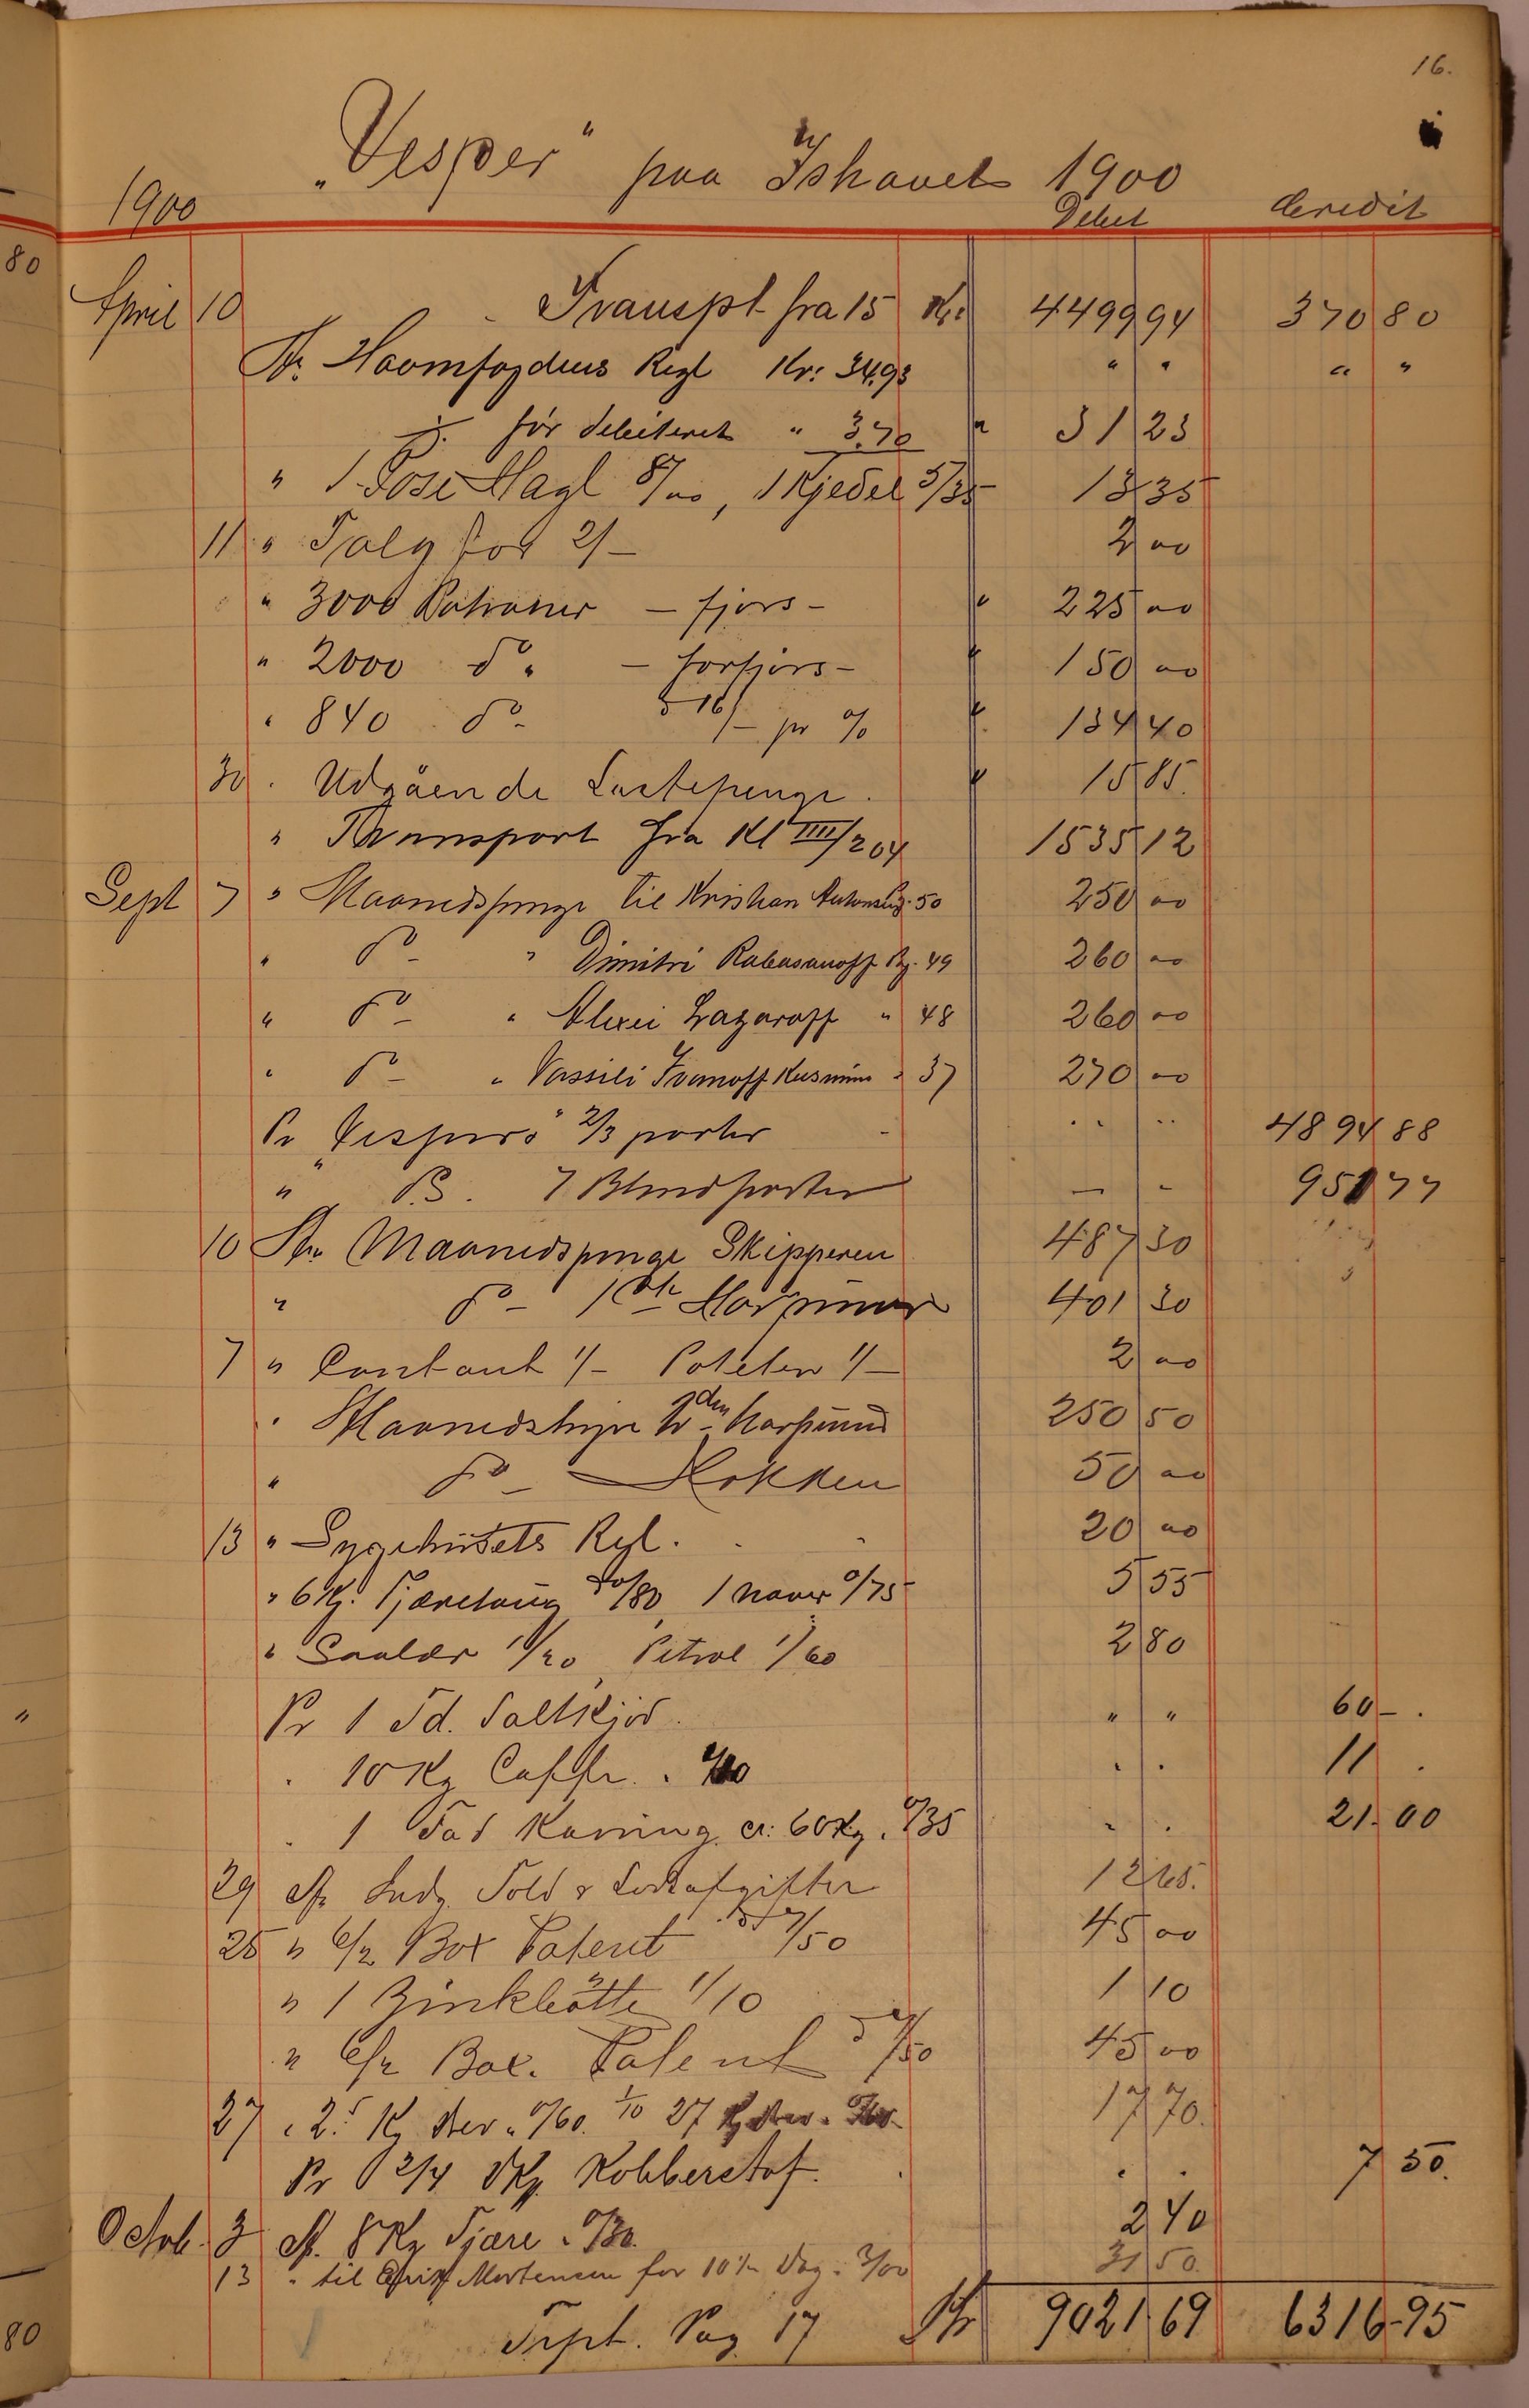 16.
„Vesper“ paa Ishavet 1900
1900 Debet Credit
April 10 Transpt fra 15 Kr: 4499 94 370 80
At Havnefogdens Regl Kr: 34.93 " " " "
÷ før debiteret " 3.70 " 31 23
" 1 Pose Hagl 8/00, 1 Kjedel 5/35 13 35
11 " Talg for 2/- 2 00
" 3000 Patroner - fjors - " 225 00
" 2000 do " - forfjors - " 150 00
" 840 do - à 16/- pr % " 134 40
30 " Udgående Lastepenge " 15 85
" Transport fra Kl IIII/204 1535 12
Sept 7 " Maanedspenge til Kristian Pg. 50 250 00
" do - " Dimitri Pg. 49 260 00
" do - " Alexei Lazaroff " 48 260 00
" do - " Vassili Ivanoff Kusmin " 37 270 00
Pr „Vespers“ 2/3 parter - 4894 88
" 7 Blindparter — - 951 77
10 At Maanedspenge Skipperen 487 30
" do - 1ste Harpuner 401 30
7 " Contant 1/- Poteter 1/- 2 00
" Maanedshyre 2den Harpuner 250 50
" do - Kokken 50 00
13 " Sygehusets Regl. 20 00
" 6 Kg. Tjæretoug à 0/80 1 naver 0/75 5 55
" Saalær 1/20, Petrol 1/60 2 80
Pr 1 Td. Saltkjød " " 60 -
" 10 Kg Caffe " " 11 "
" 1 Fad Honning ca: 60 Kg. 0/35 " " 21.00
29 At Indg. Told & Lostafgifter 12 65.
25 " 6/2 Box Patent à 7/50 45 00
" 1 Zinkbøtte 1/10 1 10
" 6/2 Box. Patent à 7/50 45 00
27 " 2.5 Kg " 0/60. 1/10 27 17 70.
Pr 3/4 Kobberstof. " " 7 50.
Octob. 3 At. 8 Kg Tjære " 0/30. 2 40
13 " til Mortensen for 10½ Dag " 3/00 31 50.
Trpt. Pag 17 Kr 9021.69 6316-95